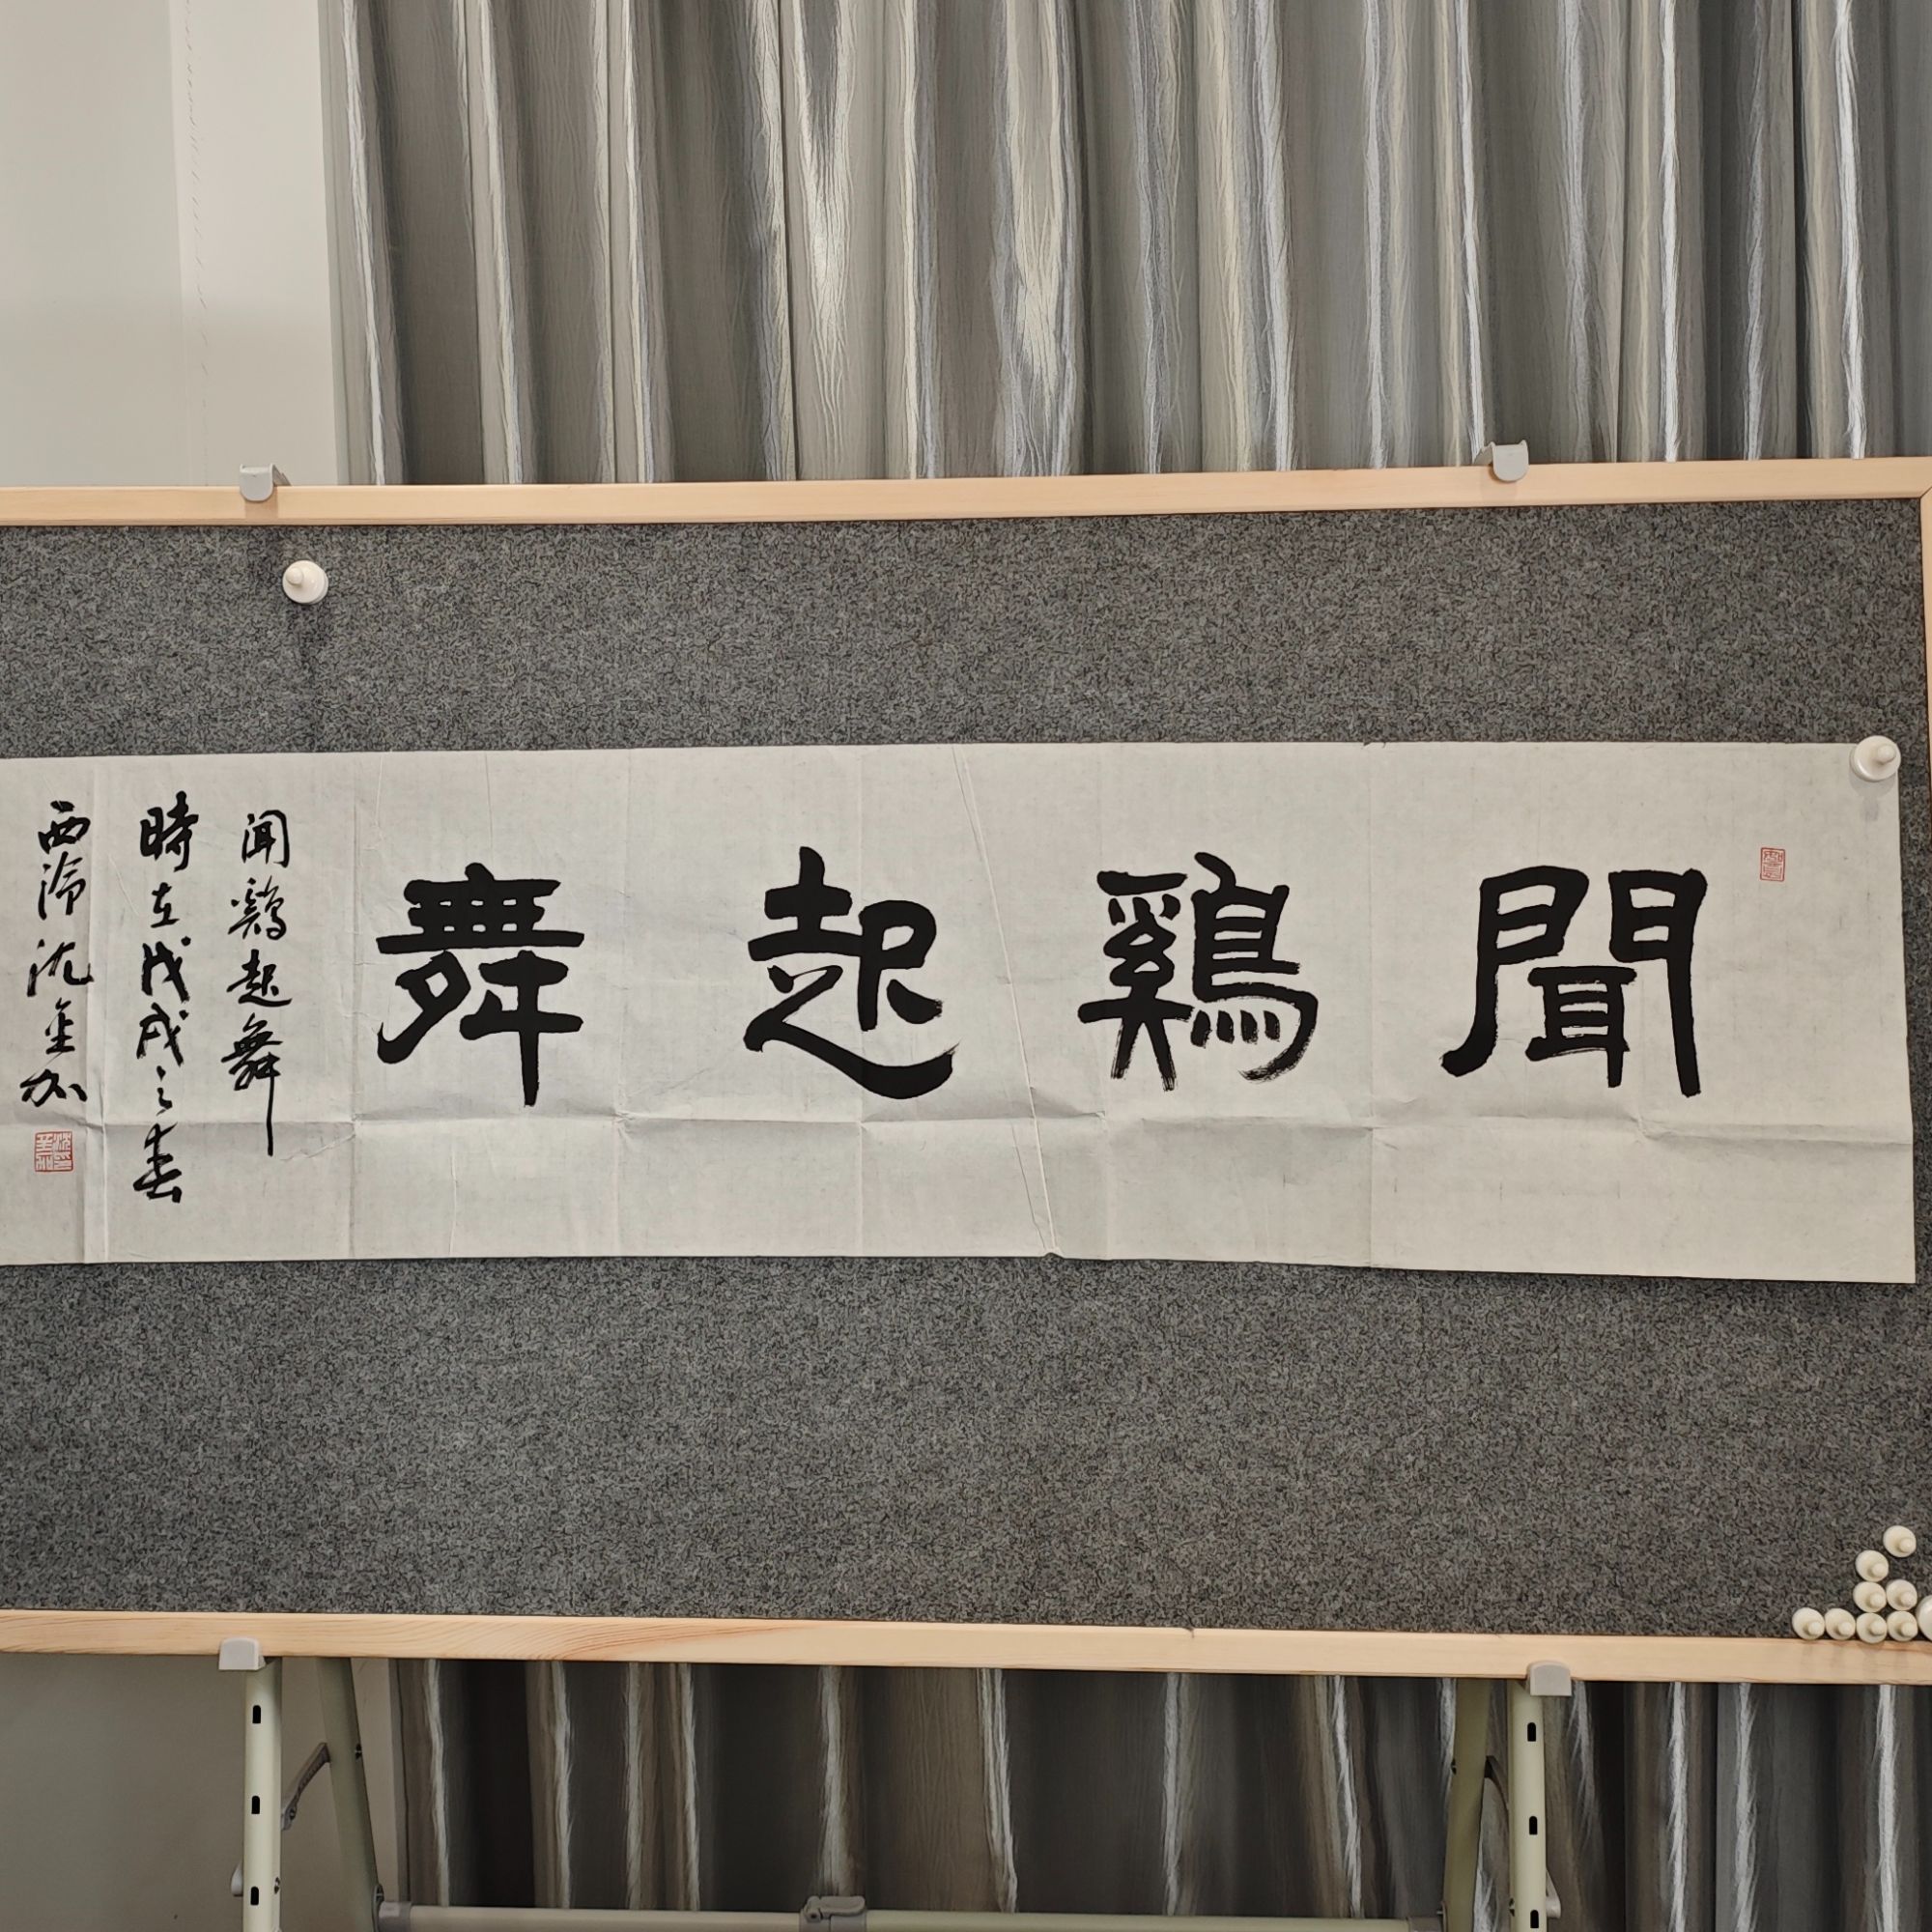 聞鷄起舞
闻鷄起舞
時在戊戌之春
西泠沈金加